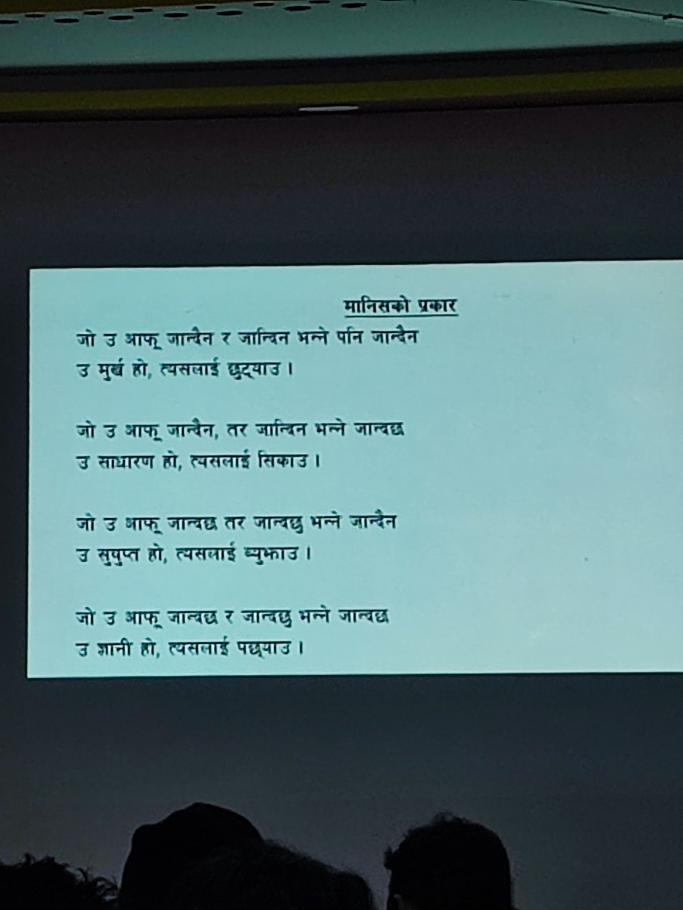 मानिसको प्रकार
जो उ आफू जान्दैन र जान्दिन भन्ने पनि जान्दैन
उ मुर्ख हो, त्यसलाई छुट्याउ ।
जो उ आफू जान्दैन, तर जान्दिन भन्ने जान्दछ
उ साधारण हो, त्यसलाई सिकाउ ।
जो उ आफू जान्दछ तर जान्दछु भन्ने जान्दैन
उ सुषुप्त हो, त्यसलाई ब्युझाउ ।
जो उ आफू जान्दछ र जान्दछु भन्ने जान्दछ
उ ज्ञानी हो, त्यसलाई पछ्याउ ।